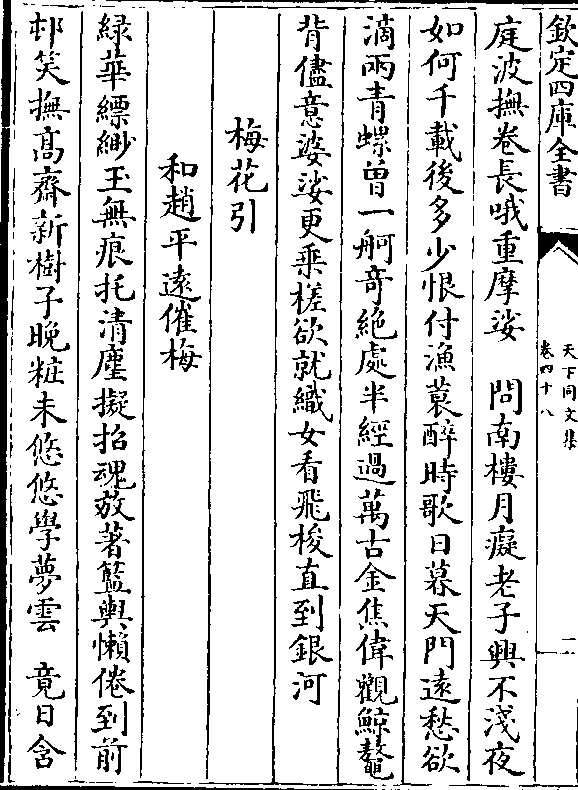 欽定四庫全書
天下同文集
卷四十八
二
庭波撫卷長哦重摩娑　問南樓月癡老子興不淺夜
如何千載後多少恨付漁蓑醉時歌日暮天門遠愁欲
滴兩青螺曽一舸竒絶處半經過萬古金焦偉觀鯨鼇
背儘意婆娑更乗槎欲就織女看飛梭直到銀河
梅花引
和趙平逺催梅
緑華縹緲玉無痕托清塵擬招魂放著籃輿懶倦到前
邨笑撫髙齋新樹子晚粧未悠悠學夢雲　竟日含